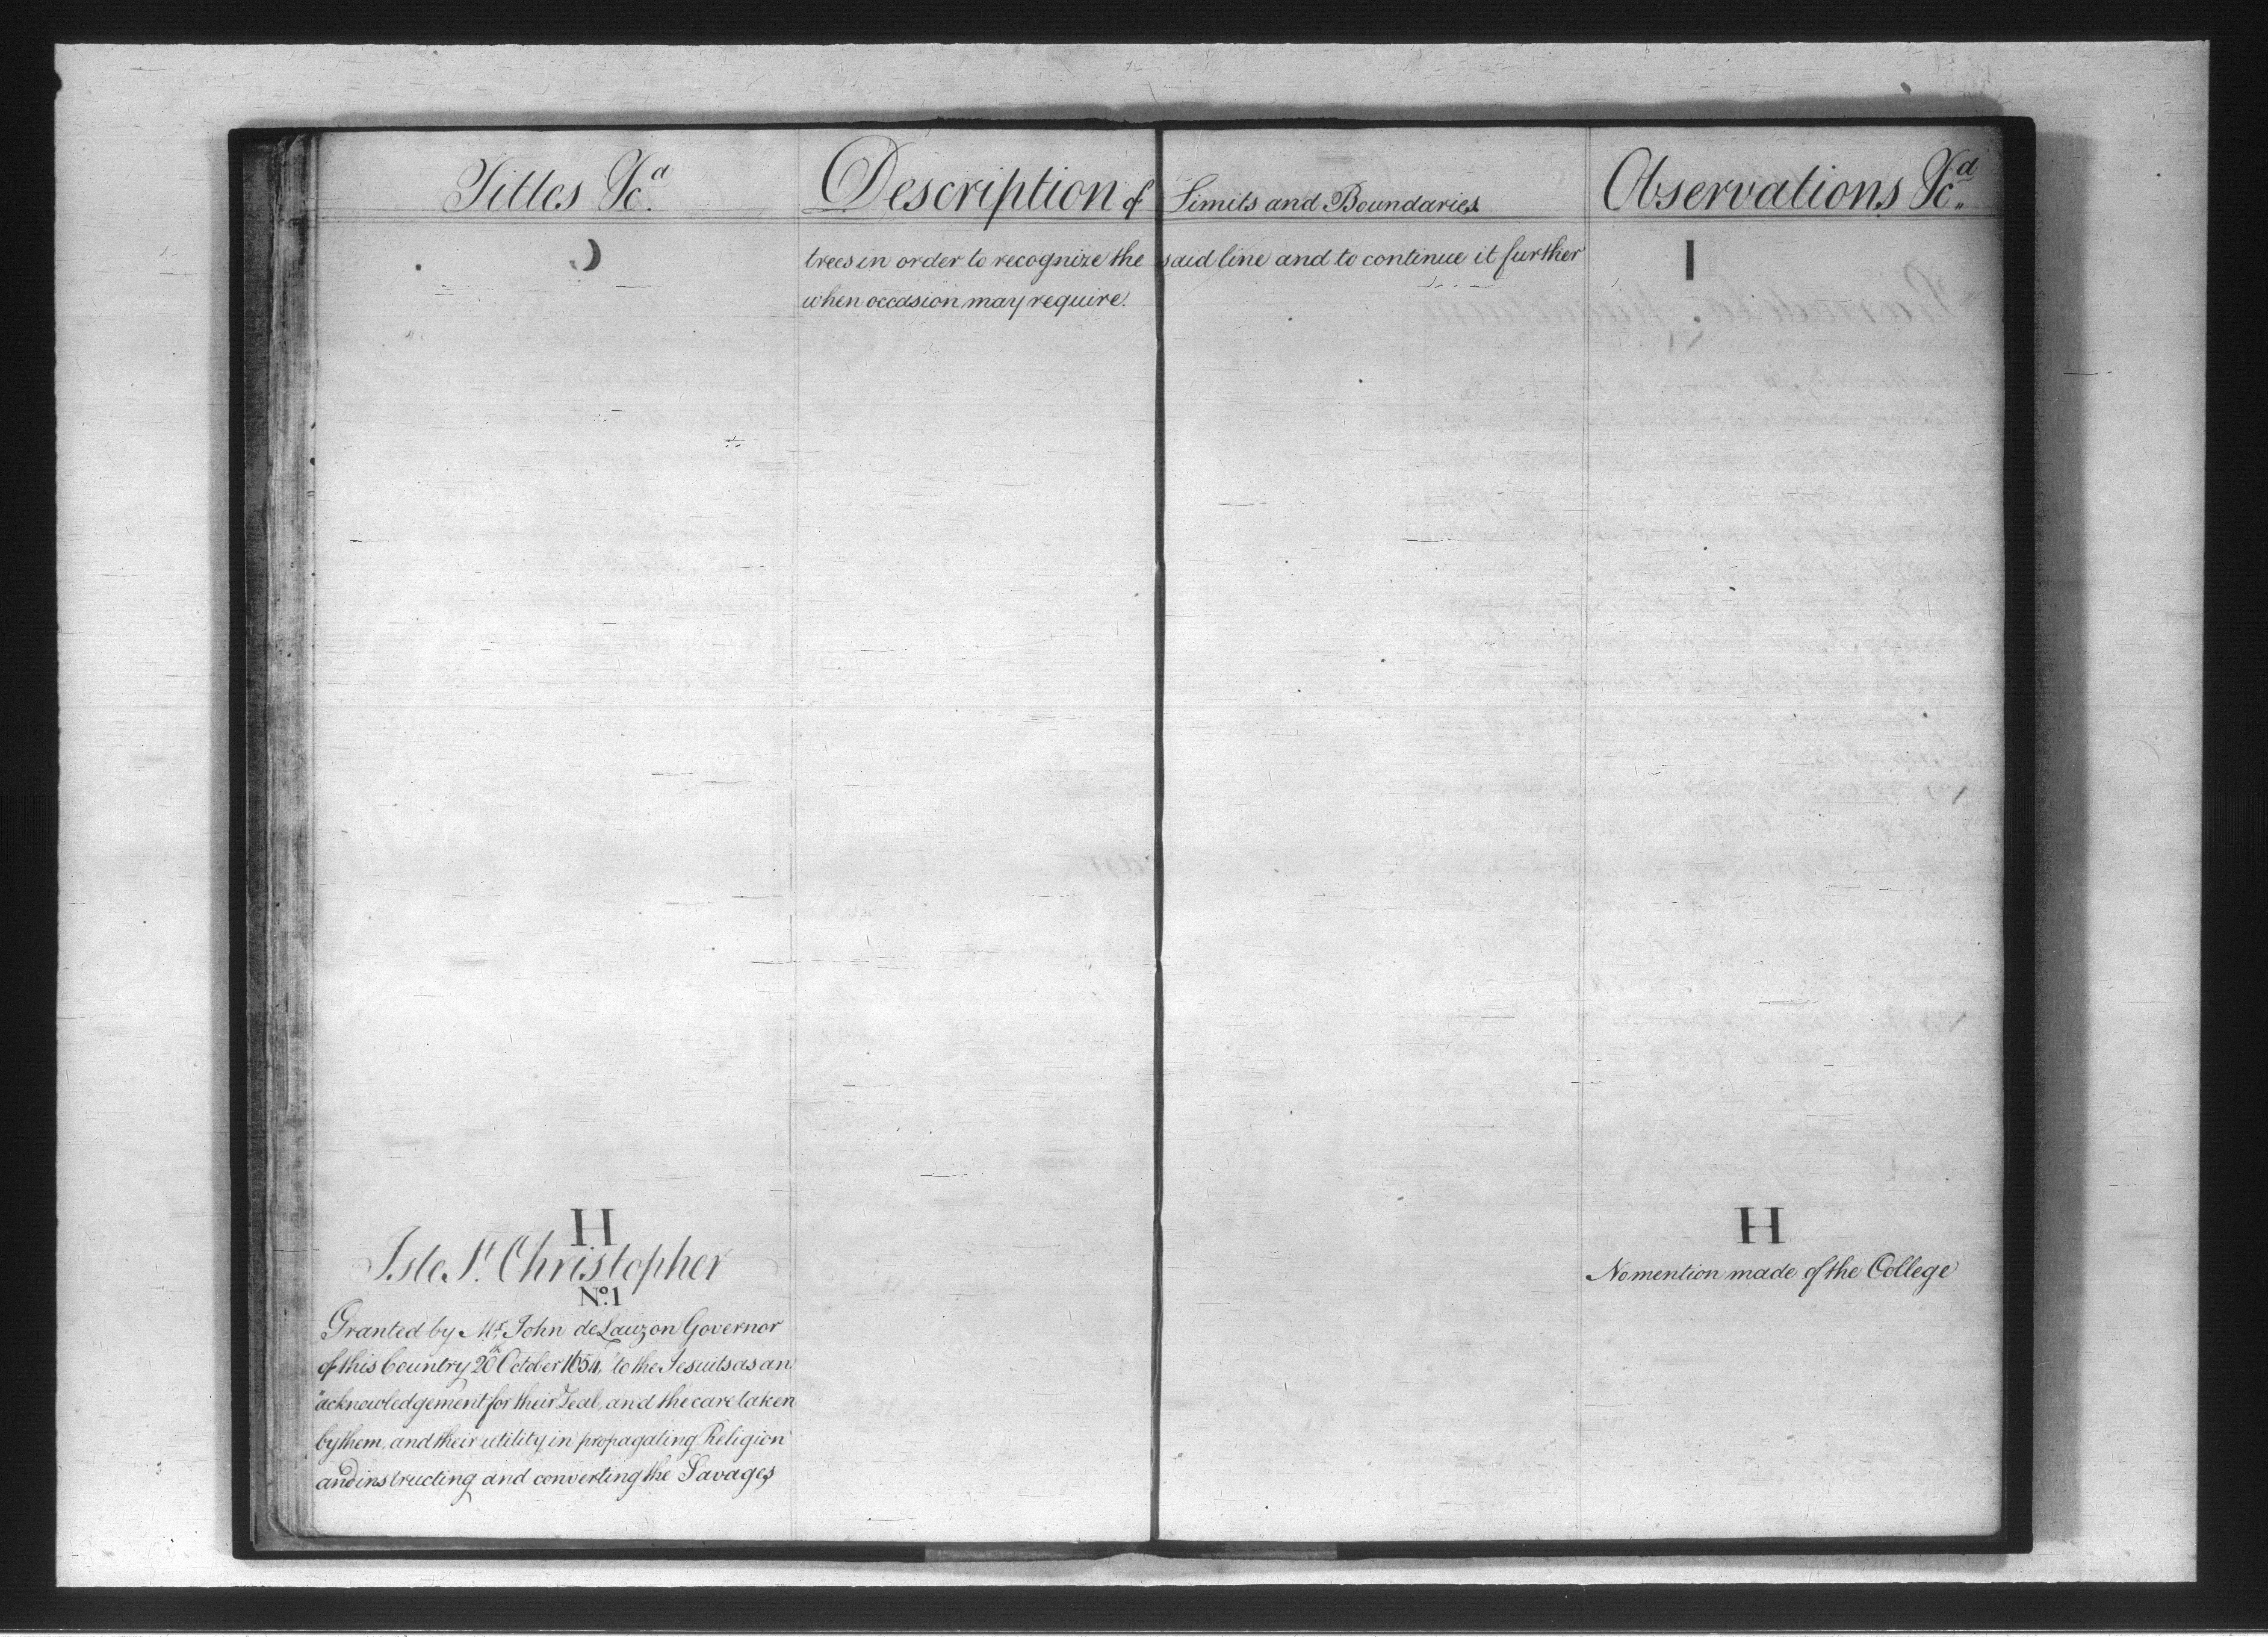 Titles &c.a
Description of Limits and Boundaries
Observations &c.a
trees in order to recognize the said line and to continue it further
when occasion may require.
H
Isle St. Christopher
No. 1
Granted by Mr. John de Lauzon Governor
of this Country 20th October 1654, "to the Jesuits as an
"acknowledgement for their Zeal, and the care taken
by them, and their utility in propagating Religion
and instructing and converting the Savages
H
No mention made of the College